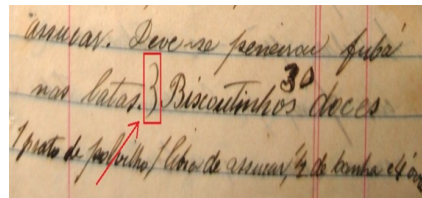 assucar. Deve-se peneirar fubá
nas latas. } Biscoutinhos 30 doces
1 prato de polvilho, 1 libra de assucar, ½ de banha e 4 ovos